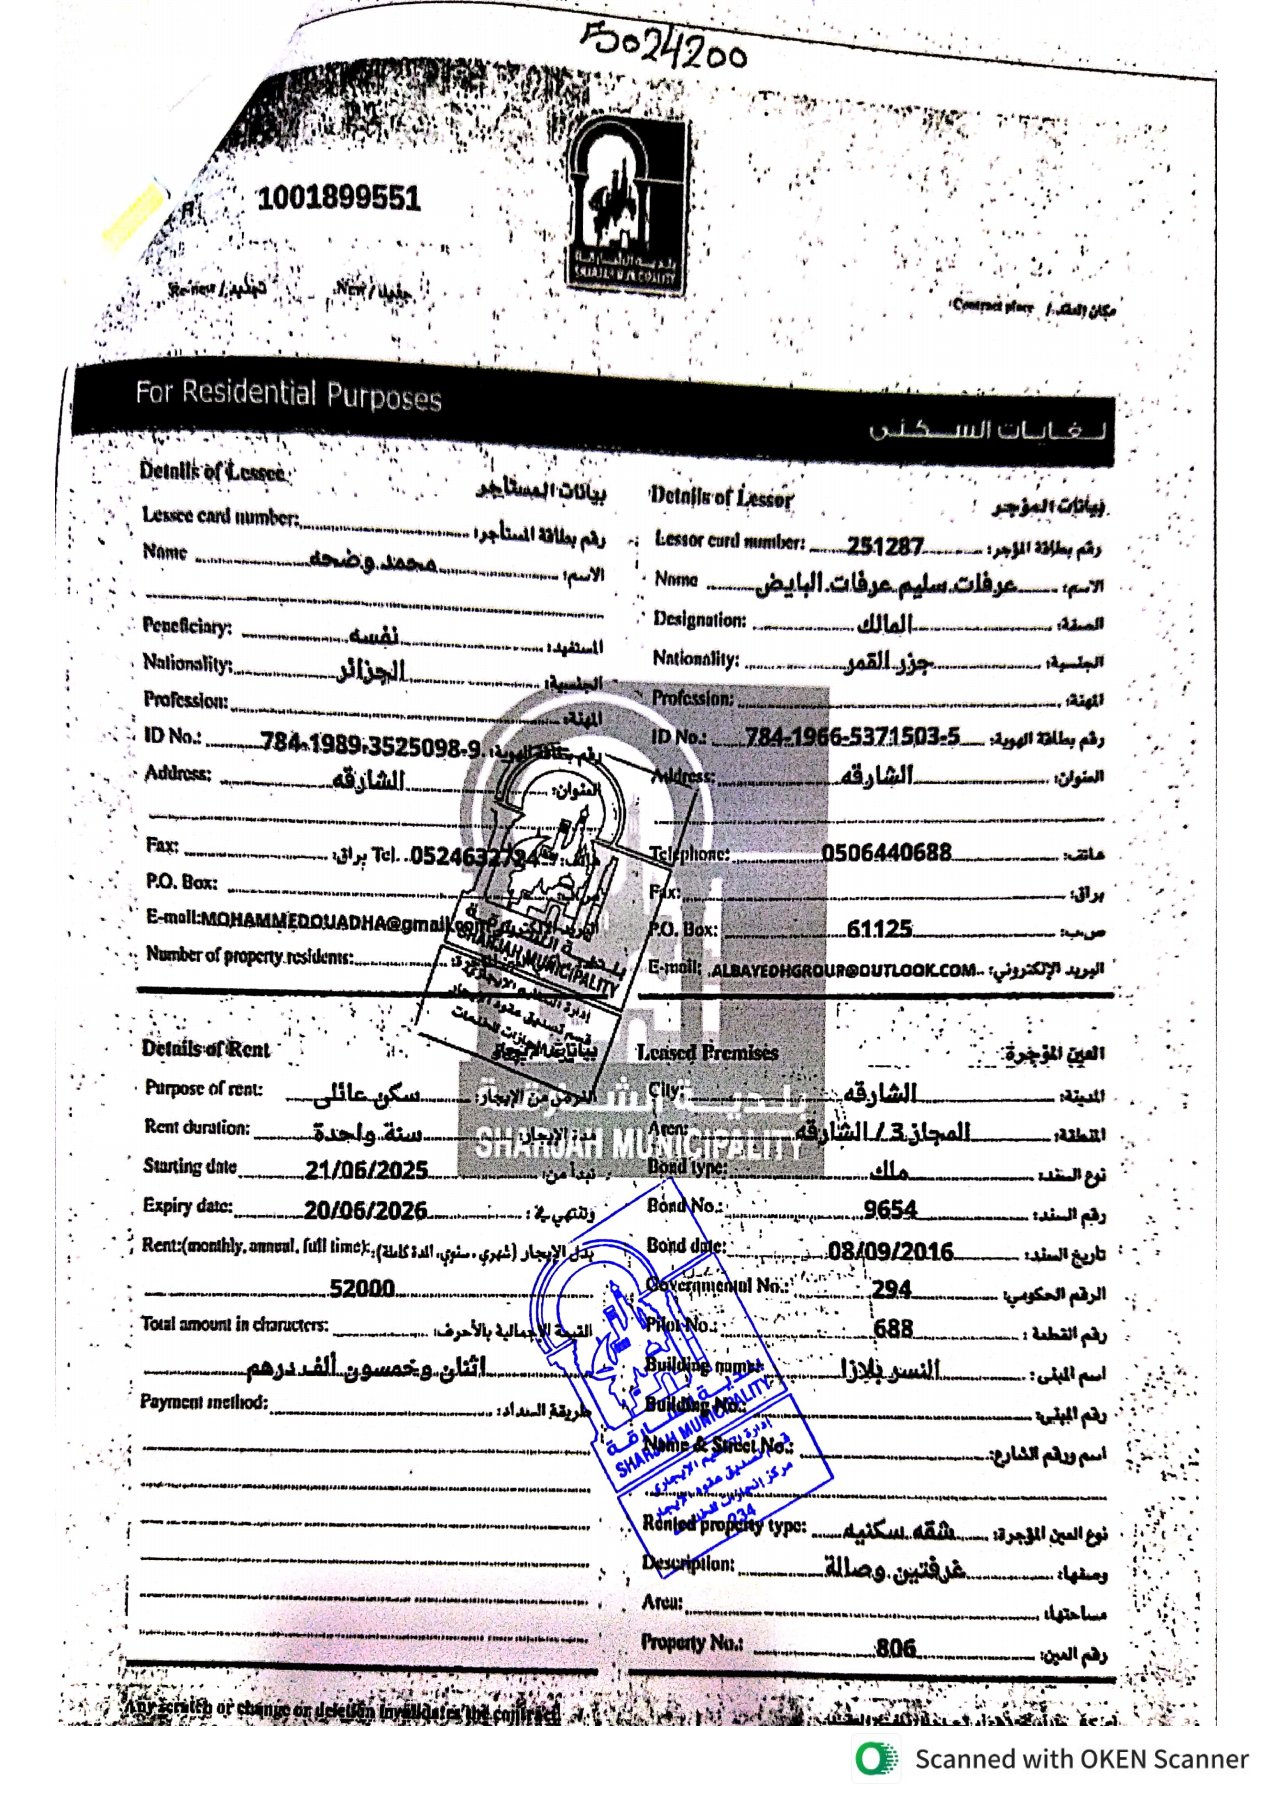 5024200
1001899551
بلدية الشارقة
SHARJAH MUNICIPALITY
Re-new / تجديد
New / جديد
Contract place / مكان العقد
For Residential Purposes
لغايات السكنى
Details of Lessee
بيانات المستأجر
Lessee card number: رقم بطاقة المستأجر:
Name محمد وضحه الاسم:
Beneficiary: نفسه المستفيد:
Nationality: الجزائر الجنسية:
Profession: المهنة:
ID No.: 784-1989-3525098-9 رقم بطاقة الهوية:
Address: الشارقه العنوان:
Fax: براق: Tel.
P.O. Box:
E-mail: MOHAMMEDOUADHA@gmail.com
Number of property residents:
Details of Lessor
بيانات المؤجر
Lessor card number: 251287 رقم بطاقة المؤجر:
Name عرفات سليم عرفات البايض الاسم:
Designation: المالك الصفة:
Nationality: جزر القمر الجنسية:
Profession: المهنة:
ID No.: 784-1966-5371503-5 رقم بطاقة الهوية:
Address: الشارقه العنوان:
Telephone: 0506440688 هاتف:
Fax: براق:
P.O. Box: 61125 ص.ب:
E-mail: ALBAYEDHGROUP@OUTLOOK.COM البريد الإلكتروني:
Details of Rent
بيانات الإيجار
Purpose of rent: سكن عائلى الغرض من الإيجار:
Rent duration: سنة واحدة مدة الإيجار:
Starting date 21/06/2025 تبدأ من:
Expiry date: 20/06/2026 وتنتهي في:
Rent:(monthly, annual, full time): بدل الإيجار (شهري، سنوي، المدة كاملة):
52000
Total amount in characters: القيمة الإجمالية بالأحرف:
اثنان وخمسون ألف درهم
Payment method: طريقة السداد:
Leased Premises
العين المؤجرة
City: الشارقه المدينة:
Area: المجاز 3 / الشارقه المنطقة:
Bond type: ملك نوع السند:
Bond No.: 9654 رقم السند:
Bond date: 08/09/2016 تاريخ السند:
Governmental No.: 294 الرقم الحكومي:
Pilot No.: 688 رقم القطعة:
Building name: النسر بلازا اسم المبنى:
Building No.: رقم المبنى:
Name & Street No.: اسم ورقم الشارع:
Rented property type: شقه سكنيه نوع العين المؤجرة:
Description: غرفتين وصالة وصفها:
Area: مساحتها:
Property No.: 806 رقم العين:
بلدية الشارقة
SHARJAH MUNICIPALITY
بلدية الشارقة
SHARJAH MUNICIPALITY
بلدية الشارقة
SHARJAH MUNICIPALITY
234
Any scratch or change or deletion invalidates the contract
Scanned with OKEN Scanner